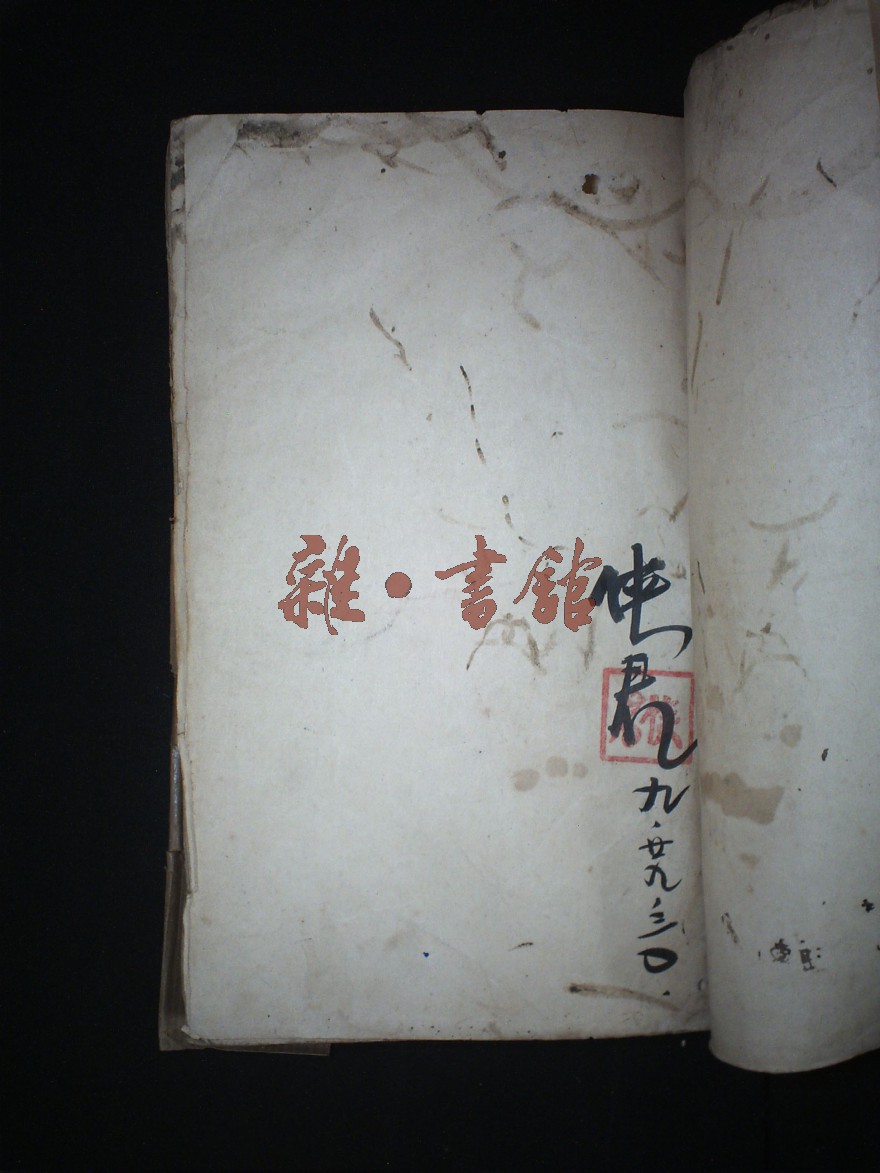 雜·書館
侠君
九·廿九·三〇.